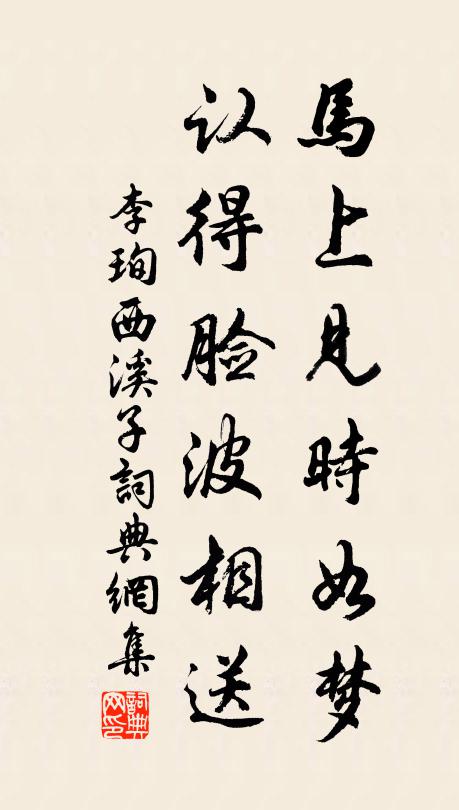 馬上見時如梦
认得脸波相送
李珣西溪子詞典網集
詞典網印